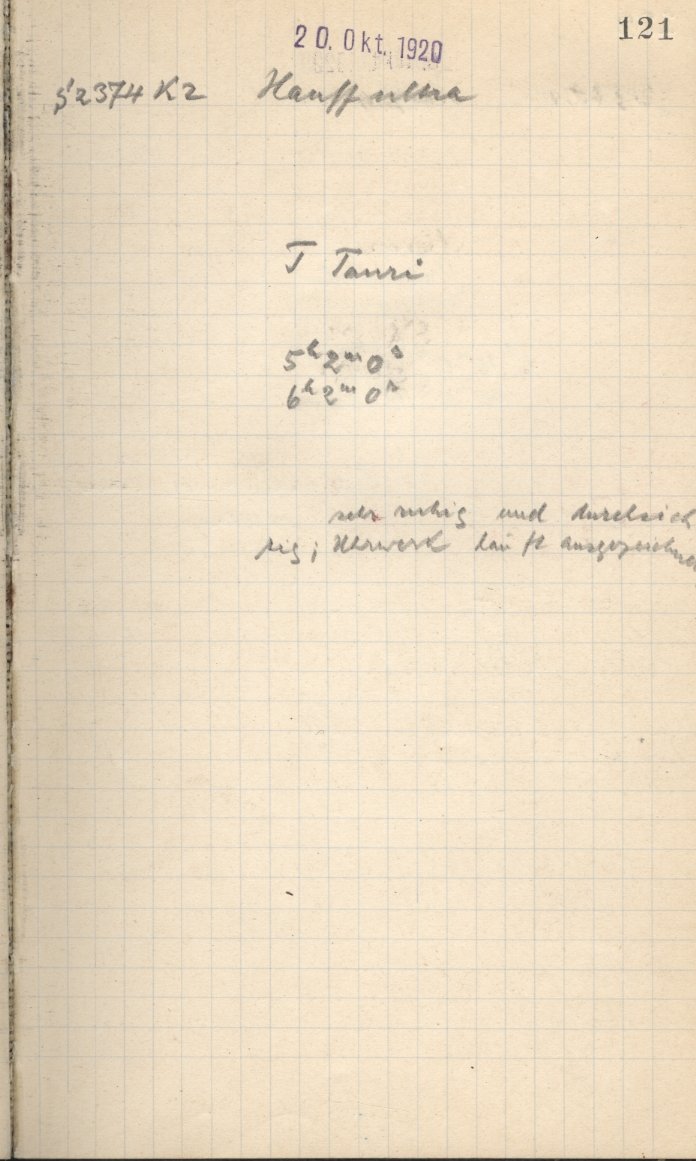 121
20. Okt. 1920
S 2374 K2 Hauff ultra
T Tauri
5h 2m 0s
6h 2m 0s
sehr ruhig und durchsich
tig; Uhrwerk läuft ausgezeichnet